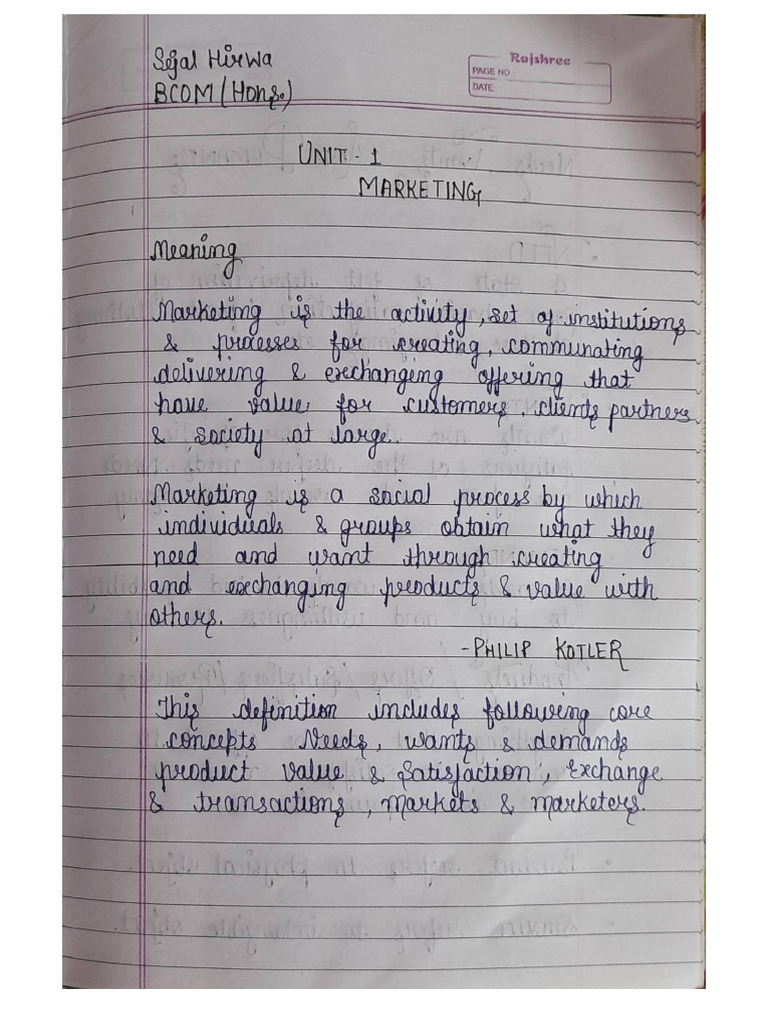 Sejal Hirwa
BCOM (Hons.)
Rajshree
PAGE NO
DATE:
UNIT - 1
MARKETING
Meaning
Marketing is the activity, set of institutions
& processes for creating, communating
delivering & exchanging offering that
have value for customers, clients partners
& society at large.
Marketing is a social process by which
individuals & groups obtain what they
need and want through creating
and exchanging products & value with
others.
-PHILIP KOTLER
This definition includes following core
concepts Needs, wants & demands
product value & Satisfaction, Exchange
& transactions, markets & marketers.